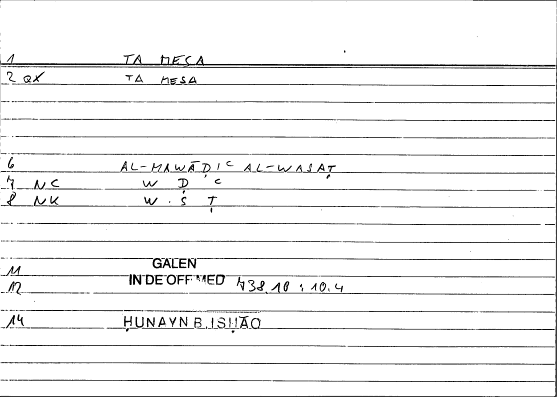 1 TA MESA
2 QX TA MESA
6 AL-MAWĀḌIʿ AL-WASAṬ
7 NC W Ḍ ʿ
8 NK W . S Ṭ
11 GALEN
12 IN DE OFF MED 738.10 ; 10.4
14 ḤUNAYN B. ISḤĀQ